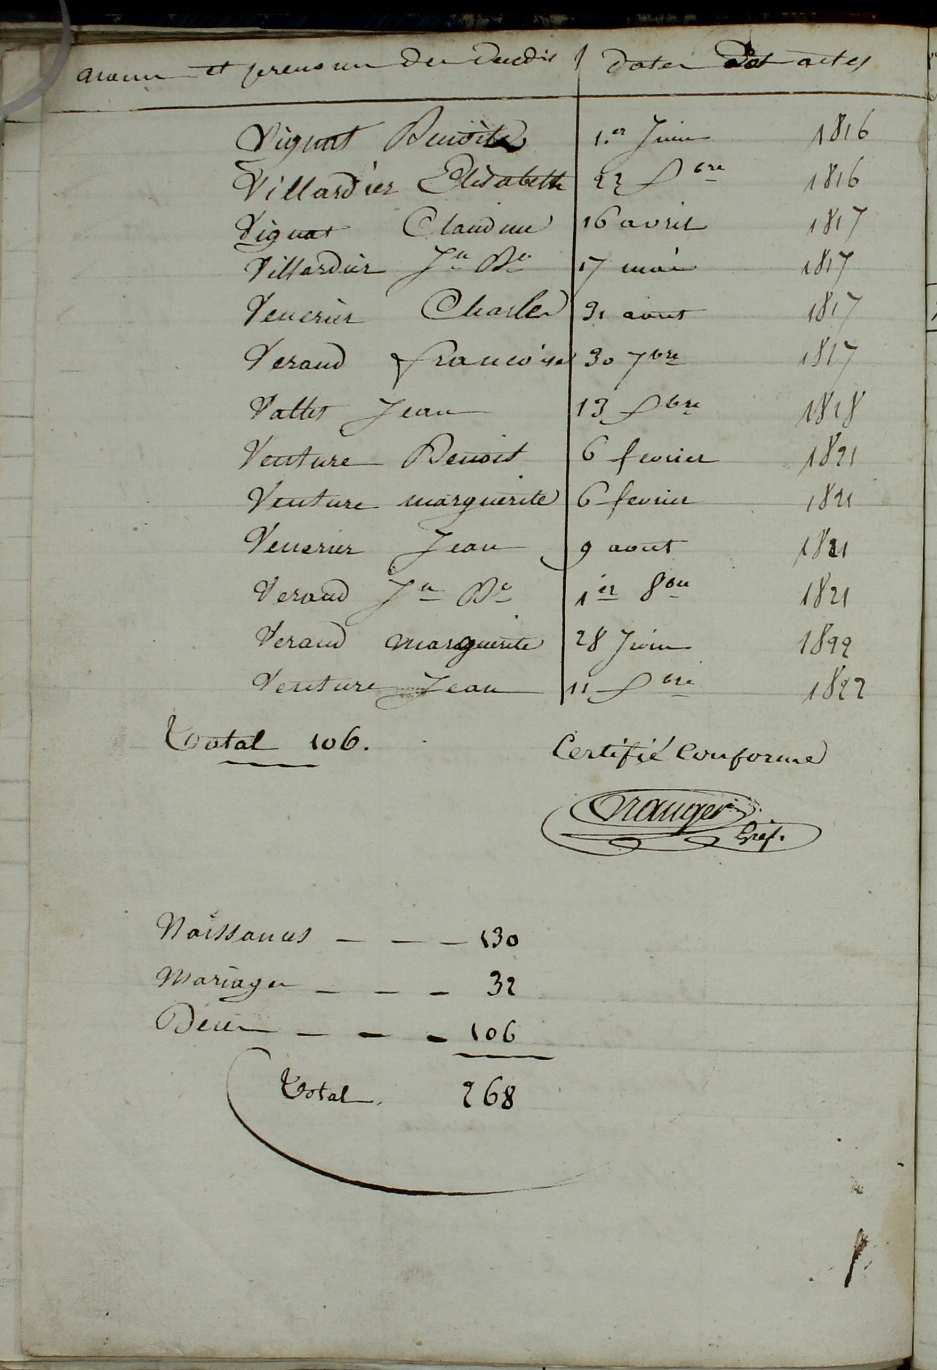 noms et prenoms des decedés dates des actes
Vignat Benoite 1er Juin 1816
Villardier Elisabeth 22 Xbre 1816
Vignat Claudine 16 avril 1817
Villardier Jn Bte 17 mai 1817
Venerier Charles 31 aout 1817
Veraud francoise 30 7bre 1817
Vallet Jean 13 Xbre 1818
Venture Benoit 6 fevrier 1821
Venture marguerite 6 fevrier 1821
Venerier Jean 9 aout 1821
Veraud Jn Bte 1er 8bre 1821
Veraud marguerite 28 Juin 1822
Venture Jean 11 Xbre 1822
Total 106.
Certifié Conforme
Granger
Gref.
Naissances — — — 130
Mariages — — — 32
Décès — — — 106
Total. 268